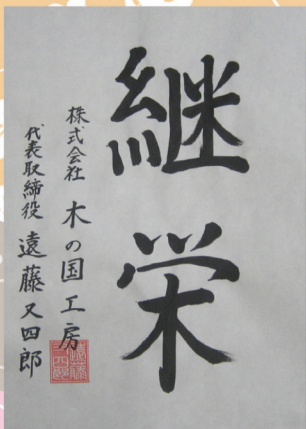 継栄
株式会社 木の国工房
代表取締役 遠藤又四郎
遠藤
又四郎